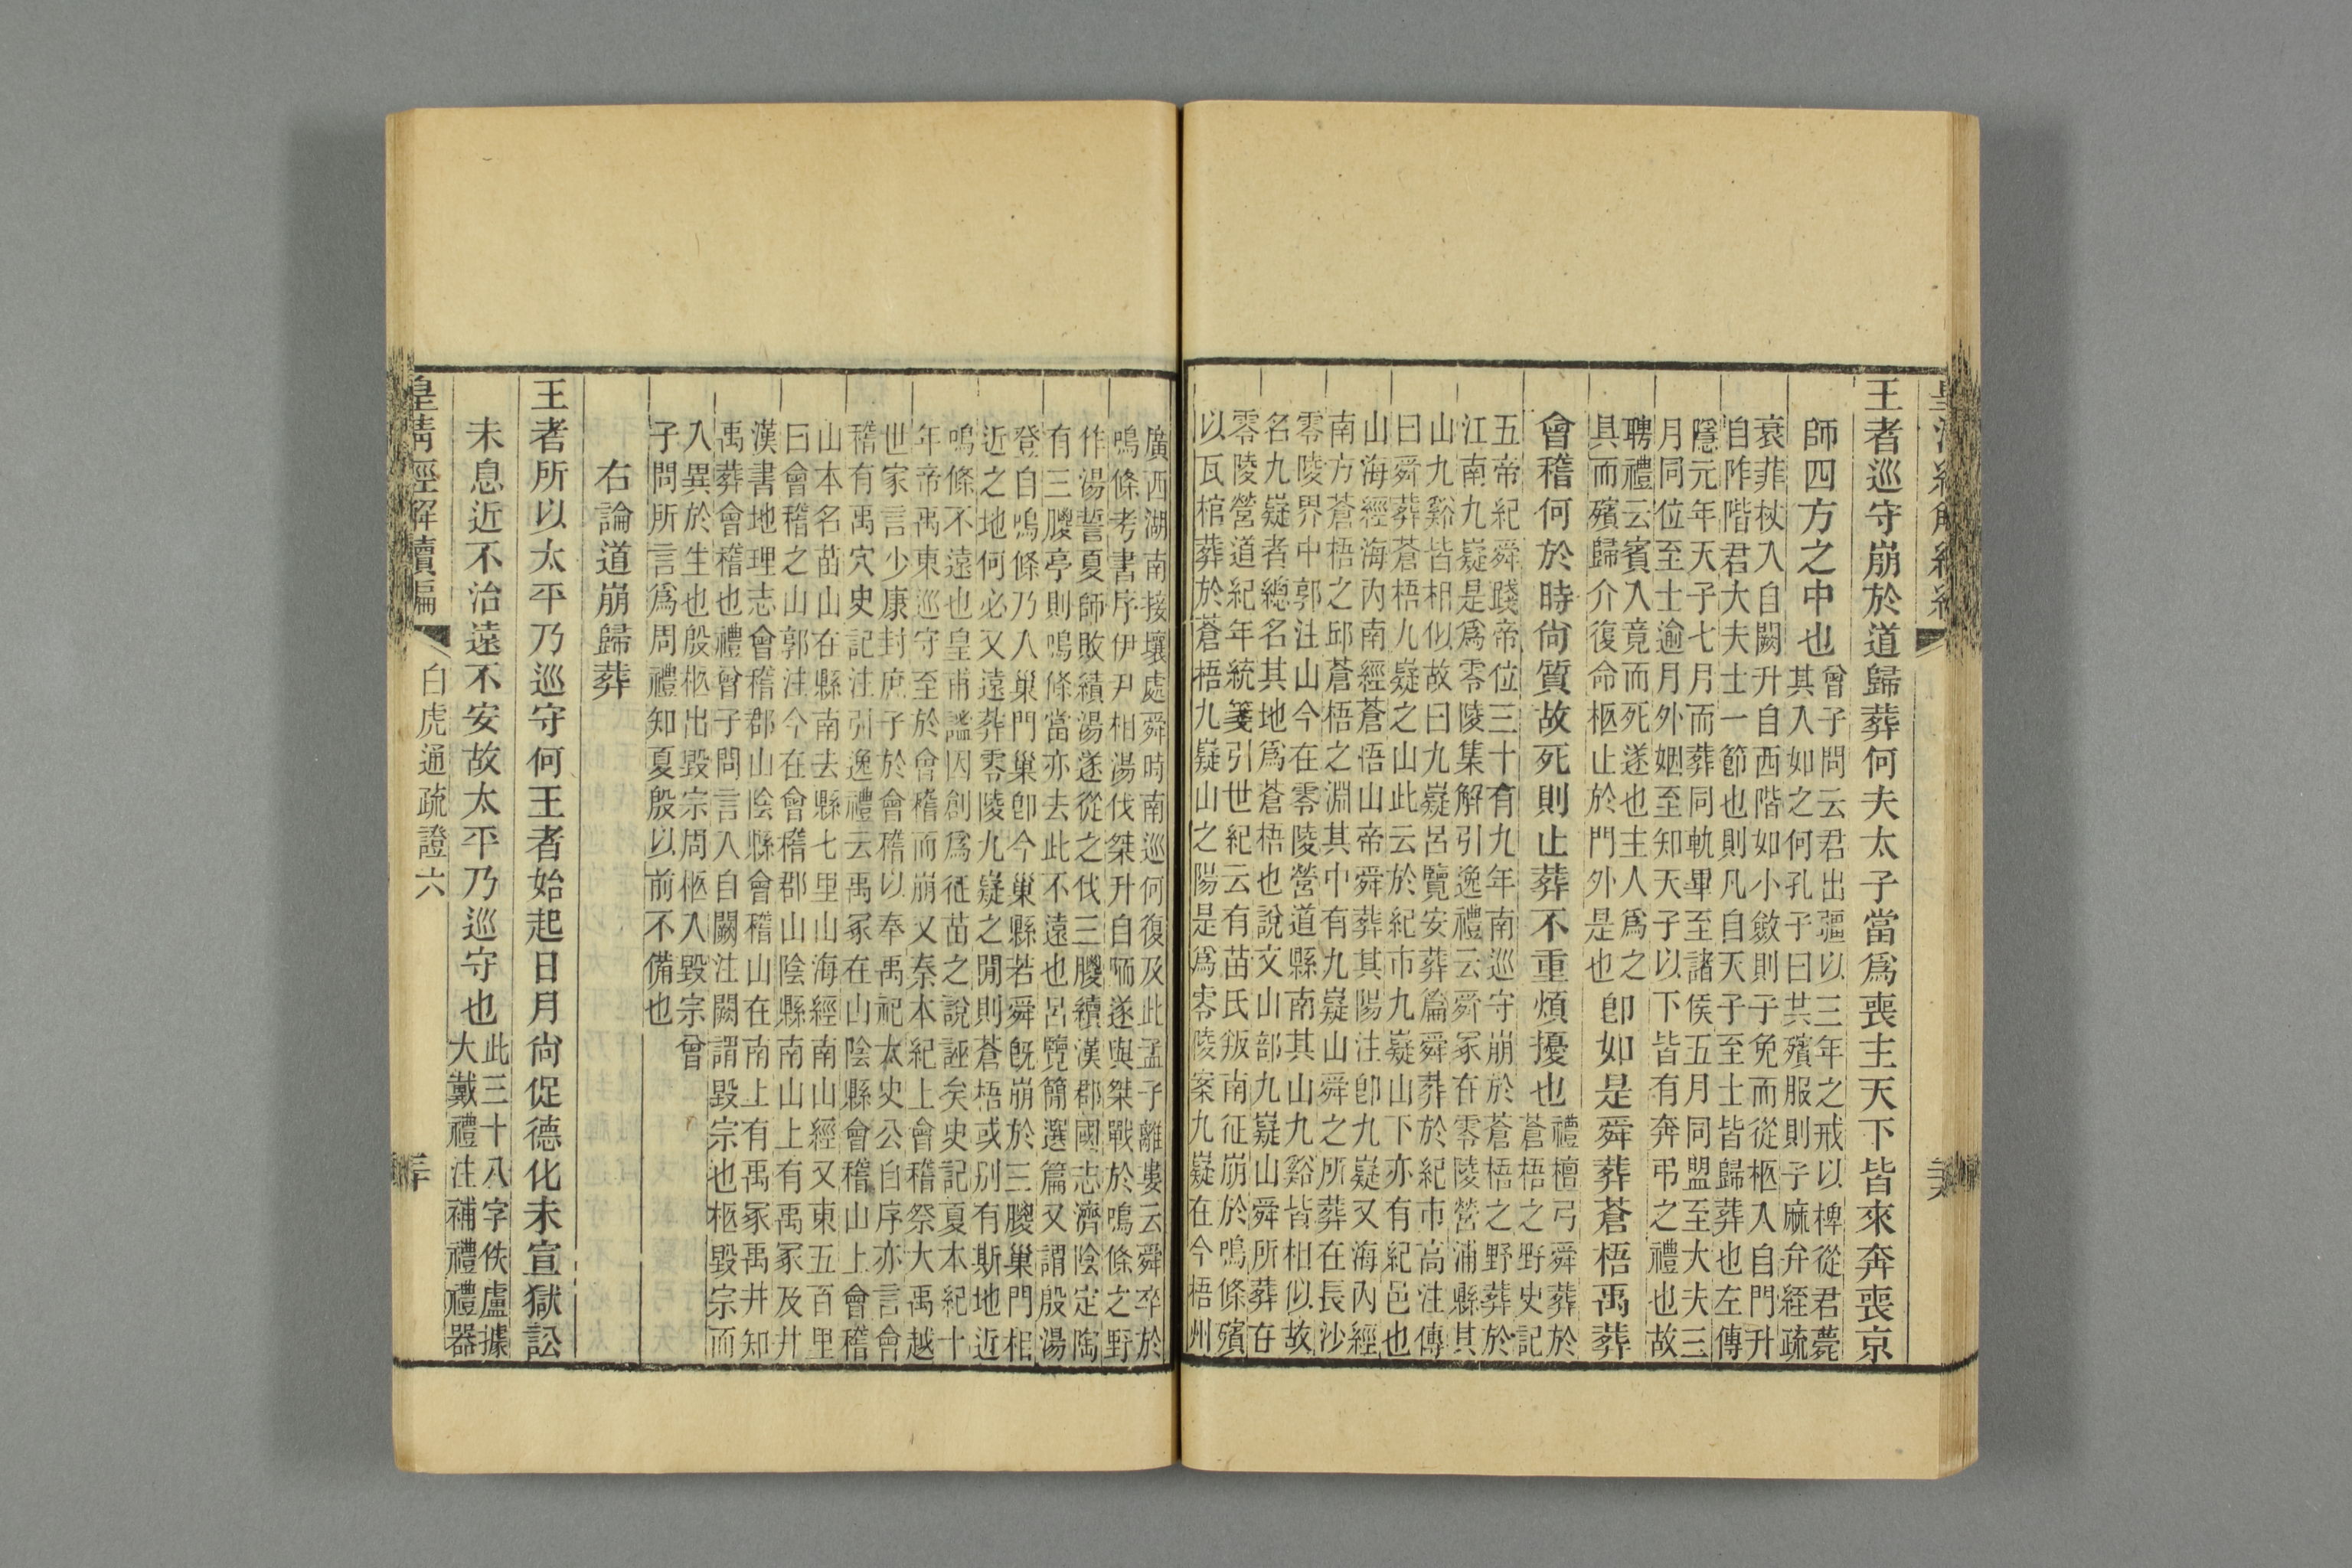 王者巡守崩於道歸葬何夫太子當爲喪主天下皆來奔喪京
師四方之中也
曾子問云君出疆以三年之戒以椑從君薨
其入如之何孔子曰共殯服則子麻弁絰疏
衰菲杖入自闕升自西階如小斂則子免而從柩入自門升
自阼階君大夫士一節也則凡自天子至士皆歸葬也左傳
隱元年天子七月而葬同軌畢至諸侯五月同盟至大夫三
月同位至士逾月外姻至知天子以下皆有奔弔之禮也故
聘禮云賓入竟而死遂也主人爲之
具而殯歸介復命柩止於門外是也
卽如是舜葬蒼梧禹葬
會稽何於時尙質故死則止葬不重煩擾也
禮檀弓舜葬於
蒼梧之野史記
五帝紀舜踐帝位三十有九年南巡守崩於蒼梧之野葬於
江南九嶷是爲零陵集解引逸禮云舜冢在零陵營浦縣其
山九谿皆相似故曰九嶷呂覽安葬篇舜葬於紀市高注傳
曰舜葬蒼梧九嶷之山此云於紀市九嶷山下亦有紀邑也
山海經海內南經蒼梧山帝舜葬其陽注卽九嶷又海內經
南方蒼梧之邱蒼梧之淵其中有九嶷山舜之所葬在長沙
零陵界中郭注山今在零陵營道縣南其山九谿皆相似故
名九嶷者總名其地爲蒼梧也說文山部九嶷山舜所葬在
零陵營道紀年統箋引世紀云有苗氏叛南征崩於鳴條殯
以瓦棺葬於蒼梧九嶷山之陽是爲零陵案九嶷在今梧州
廣西湖南接壤處舜時南巡何復及此孟子離婁云舜卒於
鳴條考書序伊尹相湯伐桀升自陑遂與桀戰於鳴條之野
作湯誓夏師敗績湯遂從之伐三朡續漢郡國志濟陰定陶
有三朡亭則鳴條當亦去此不遠也呂覽簡選篇又謂殷湯
登自鳴條乃入巢門巢卽今巢縣若舜旣崩於三朡巢門相
近之地何必又遠葬零陵九嶷之閒則蒼梧或別有斯地近
鳴條不遠也皇甫謐因創爲征苗之說誣矣史記夏本紀十
年帝禹東巡守至於會稽而崩又秦本紀上會稽祭大禹越
世家言少康封庶子於會稽以奉禹祀太史公自序亦言會
稽有禹穴史記注引逸禮云禹冢在山陰縣會稽山上會稽
山本名苗山在縣南去縣七里山海經南山經又東五百里
曰會稽之山郭注今在會稽郡山陰縣南山上有禹冢及井
漢書地理志會稽郡山陰縣會稽山在南上有禹冢禹井知
禹葬會稽也禮曾子問言入自闕注闕謂毀宗也柩毀宗而
入異於生也殷柩出毀宗周柩入毀宗曾
子問所言爲周禮知夏殷以前不備也
右論道崩歸葬
王者所以太平乃巡守何王者始起日月尙促德化未宣獄訟
未息近不治遠不安故太平乃巡守也
此三十八字佚盧據
大戴禮注補禮禮器
皇淸經解續編
白虎通疏證六